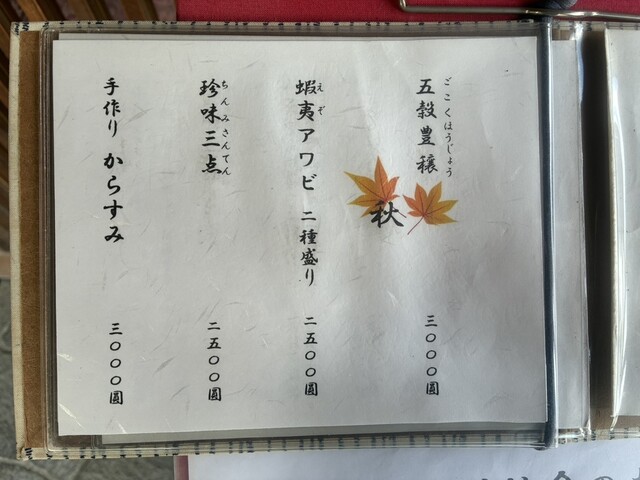 五穀豊穣
ごこくほうじょう
三〇〇〇圓
秋
蝦夷アワビ 二種盛り
えぞ
二五〇〇圓
珍味三点
ちんみさんてん
二五〇〇圓
手作り からすみ
三〇〇〇圓